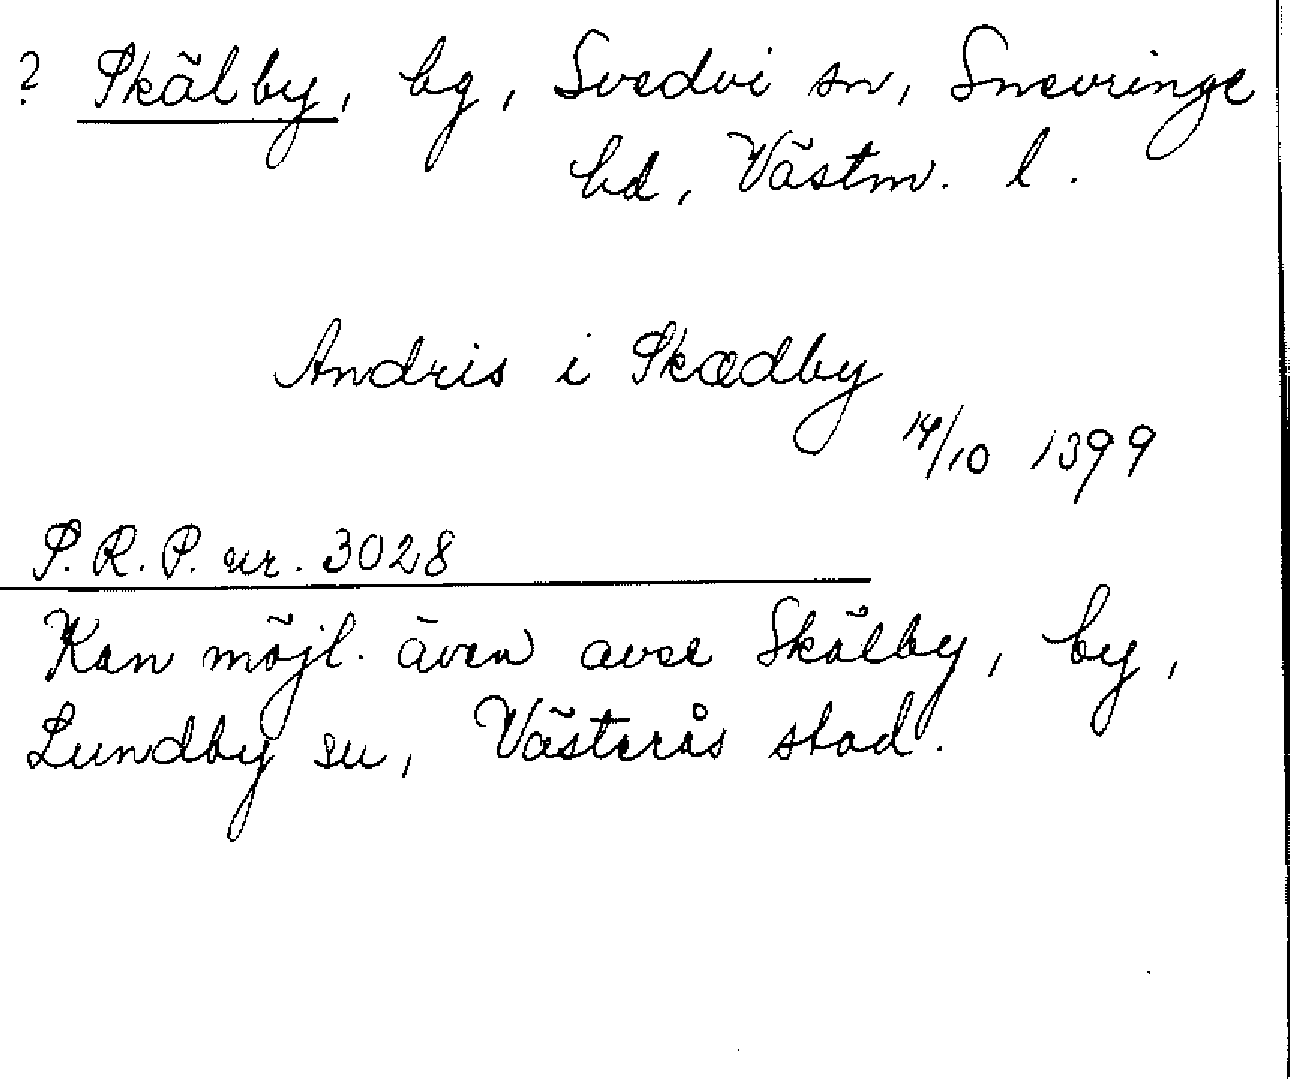 ? Skälby, by, Svedvi sn, Snevringe
hd, Västm. l.
Andris i Skædby
14/10 1399
S.R.P. nr. 3028
Kan möjl. även avse Skälby, by,
Lundby sn, Västerås stad.